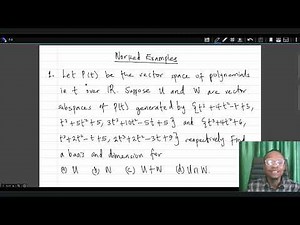 Worked Examples
1. Let P(t) be the vector space of polynomials
in t over ℝ. Suppose U and W are vector
subspaces of P(t) generated by {t³+4t²-t+3,
t³+5t²+5, 3t³+10t²-5t+5} and {t³+4t²+6,
t³+2t²-t+5, 2t³+2t²-3t+9} respectively. Find
a basis and dimension for
(a) U (b) W (c) U+W (d) U∩W.